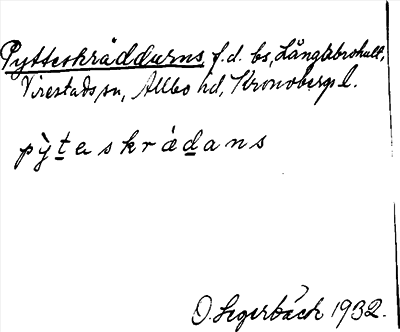 Pytteskräddarns, f.d. bs, Långabrohult,
Virestads sn, Allbo hd, Kronobergs l.
pỳteskrádans
O. Segerbäck 1932.